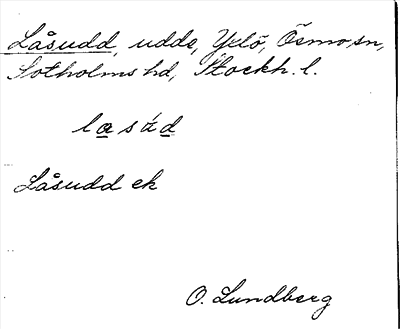 Låsudd, udde, Yxlö, Ösmo sn,
Sotholms hd, Stockh. l.
låsúd
Låsudd ek
O. Lundberg